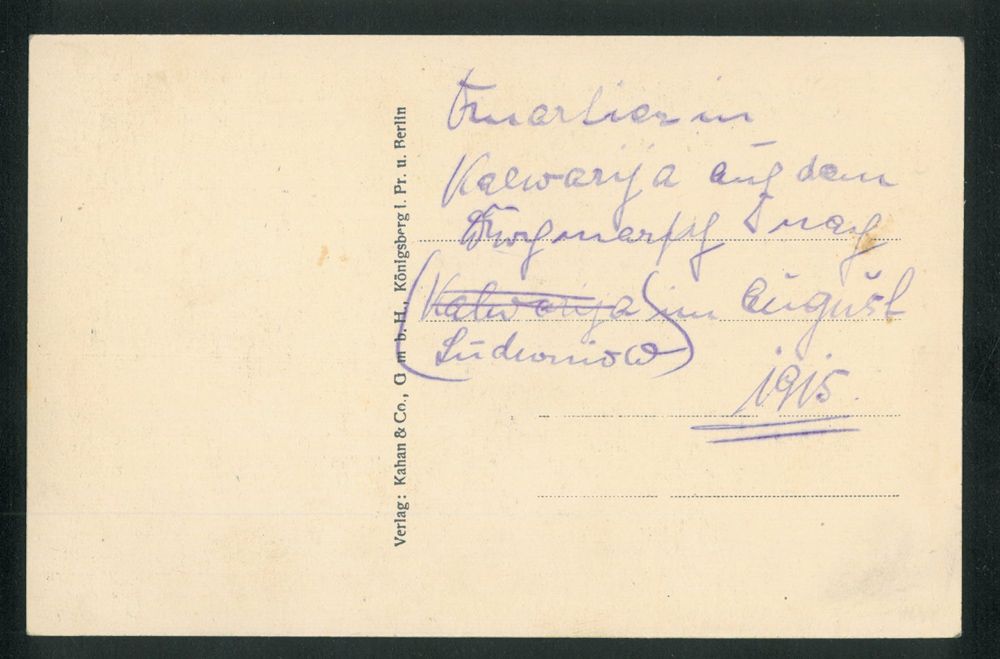 Quartier in
Kalwarija auf dem
Durchmarsch nach
(Kalwarija) im August
Ludwinow
1915.
Verlag: Kahan & Co., G. m. b. H., Königsberg i. Pr. u. Berlin